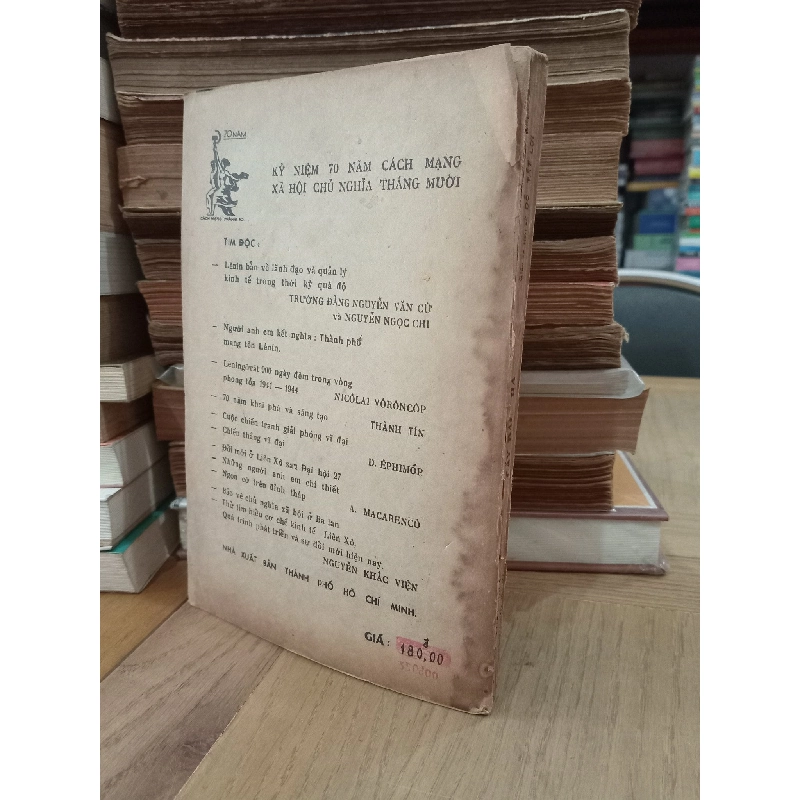 70 NĂM
CÁCH MẠNG THÁNG 10
KỶ NIỆM 70 NĂM CÁCH MẠNG
XÃ HỘI CHỦ NGHĨA THÁNG MƯỜI
TÌM ĐỌC :
— Lênin bàn về lãnh đạo và quản lý
kinh tế trong thời kỳ quá độ
TRƯỜNG ĐẢNG NGUYỄN VĂN CỪ
và NGUYỄN NGỌC CHI
— Người anh em kết nghĩa : Thành phố
mang tên Lênin.
— Lêningơrát 900 ngày đêm trong vòng
phong tỏa 1941 — 1944
NICÔLAI VÔRÔNCÔP
— 70 năm khai phá và sáng tạo
THÀNH TÍN
— Cuộc chiến tranh giải phóng vĩ đại
— Chiến thắng vĩ đại
D. ÉPHIMỐP
— Đổi mới ở Liên Xô sau Đại hội 27
— Những người anh em chí thiết
— Ngọn cờ trên đỉnh tháp
A. MACARENCÔ
— Bảo vệ chủ nghĩa xã hội ở Ba lan
— Thử tìm hiểu cơ chế kinh tế Liên Xô.
Quá trình phát triển và sự đổi mới hiện nay.
NGUYỄN KHẮC VIỆN
NHÀ XUẤT BẢN THÀNH PHỐ HỒ CHÍ MINH.
GIÁ : 180,00đ